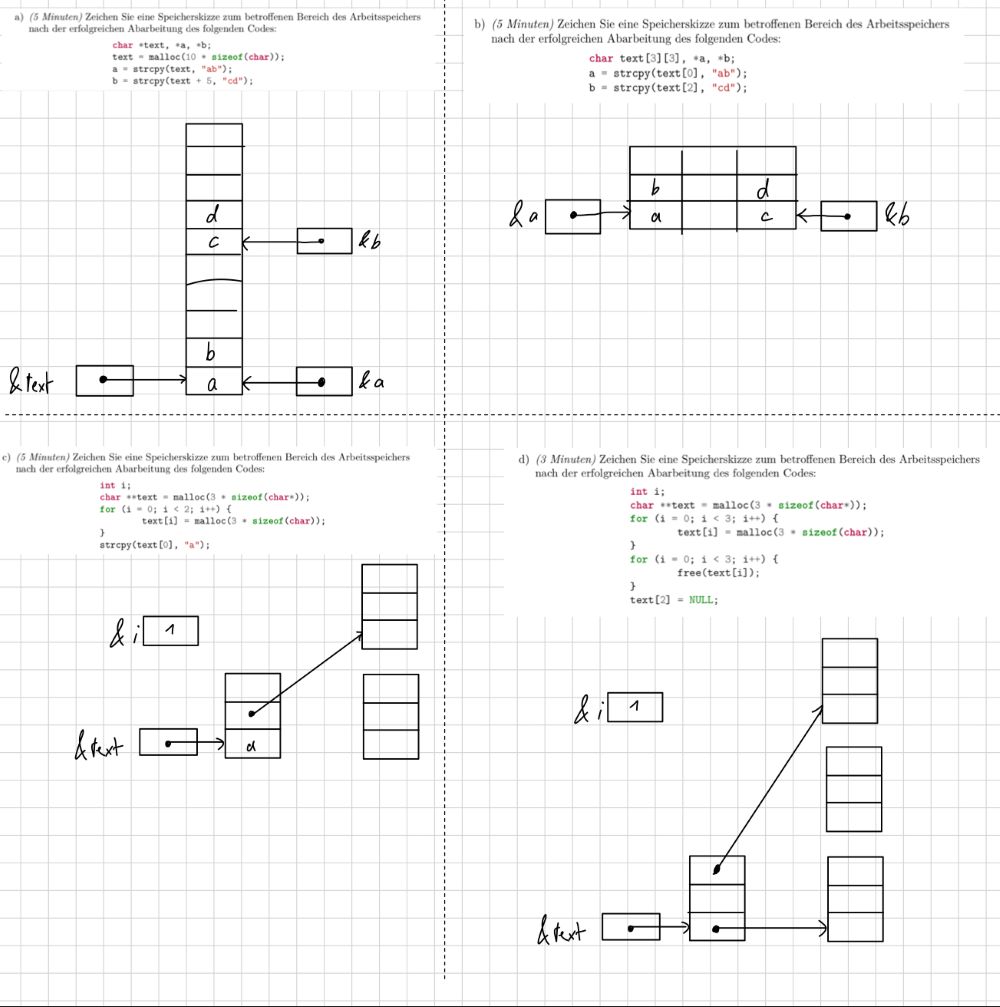 a) (5 Minuten) Zeichen Sie eine Speicherskizze zum betroffenen Bereich des Arbeitsspeichers
nach der erfolgreichen Abarbeitung des folgenden Codes:
char *text, *a, *b;
text = malloc(10 * sizeof(char));
a = strcpy(text, "ab");
b = strcpy(text + 5, "cd");
d
c
&b
b
&text
a
&a
b) (5 Minuten) Zeichen Sie eine Speicherskizze zum betroffenen Bereich des Arbeitsspeichers
nach der erfolgreichen Abarbeitung des folgenden Codes:
char text[3][3], *a, *b;
a = strcpy(text[0], "ab");
b = strcpy(text[2], "cd");
b d
&a a c &b
c) (5 Minuten) Zeichen Sie eine Speicherskizze zum betroffenen Bereich des Arbeitsspeichers
nach der erfolgreichen Abarbeitung des folgenden Codes:
int i;
char **text = malloc(3 * sizeof(char*));
for (i = 0; i < 2; i++) {
text[i] = malloc(3 * sizeof(char));
}
strcpy(text[0], "a");
&i 1
&text a
d) (3 Minuten) Zeichen Sie eine Speicherskizze zum betroffenen Bereich des Arbeitsspeichers
nach der erfolgreichen Abarbeitung des folgenden Codes:
int i;
char **text = malloc(3 * sizeof(char*));
for (i = 0; i < 3; i++) {
text[i] = malloc(3 * sizeof(char));
}
for (i = 0; i < 3; i++) {
free(text[i]);
}
text[2] = NULL;
&i 1
&text